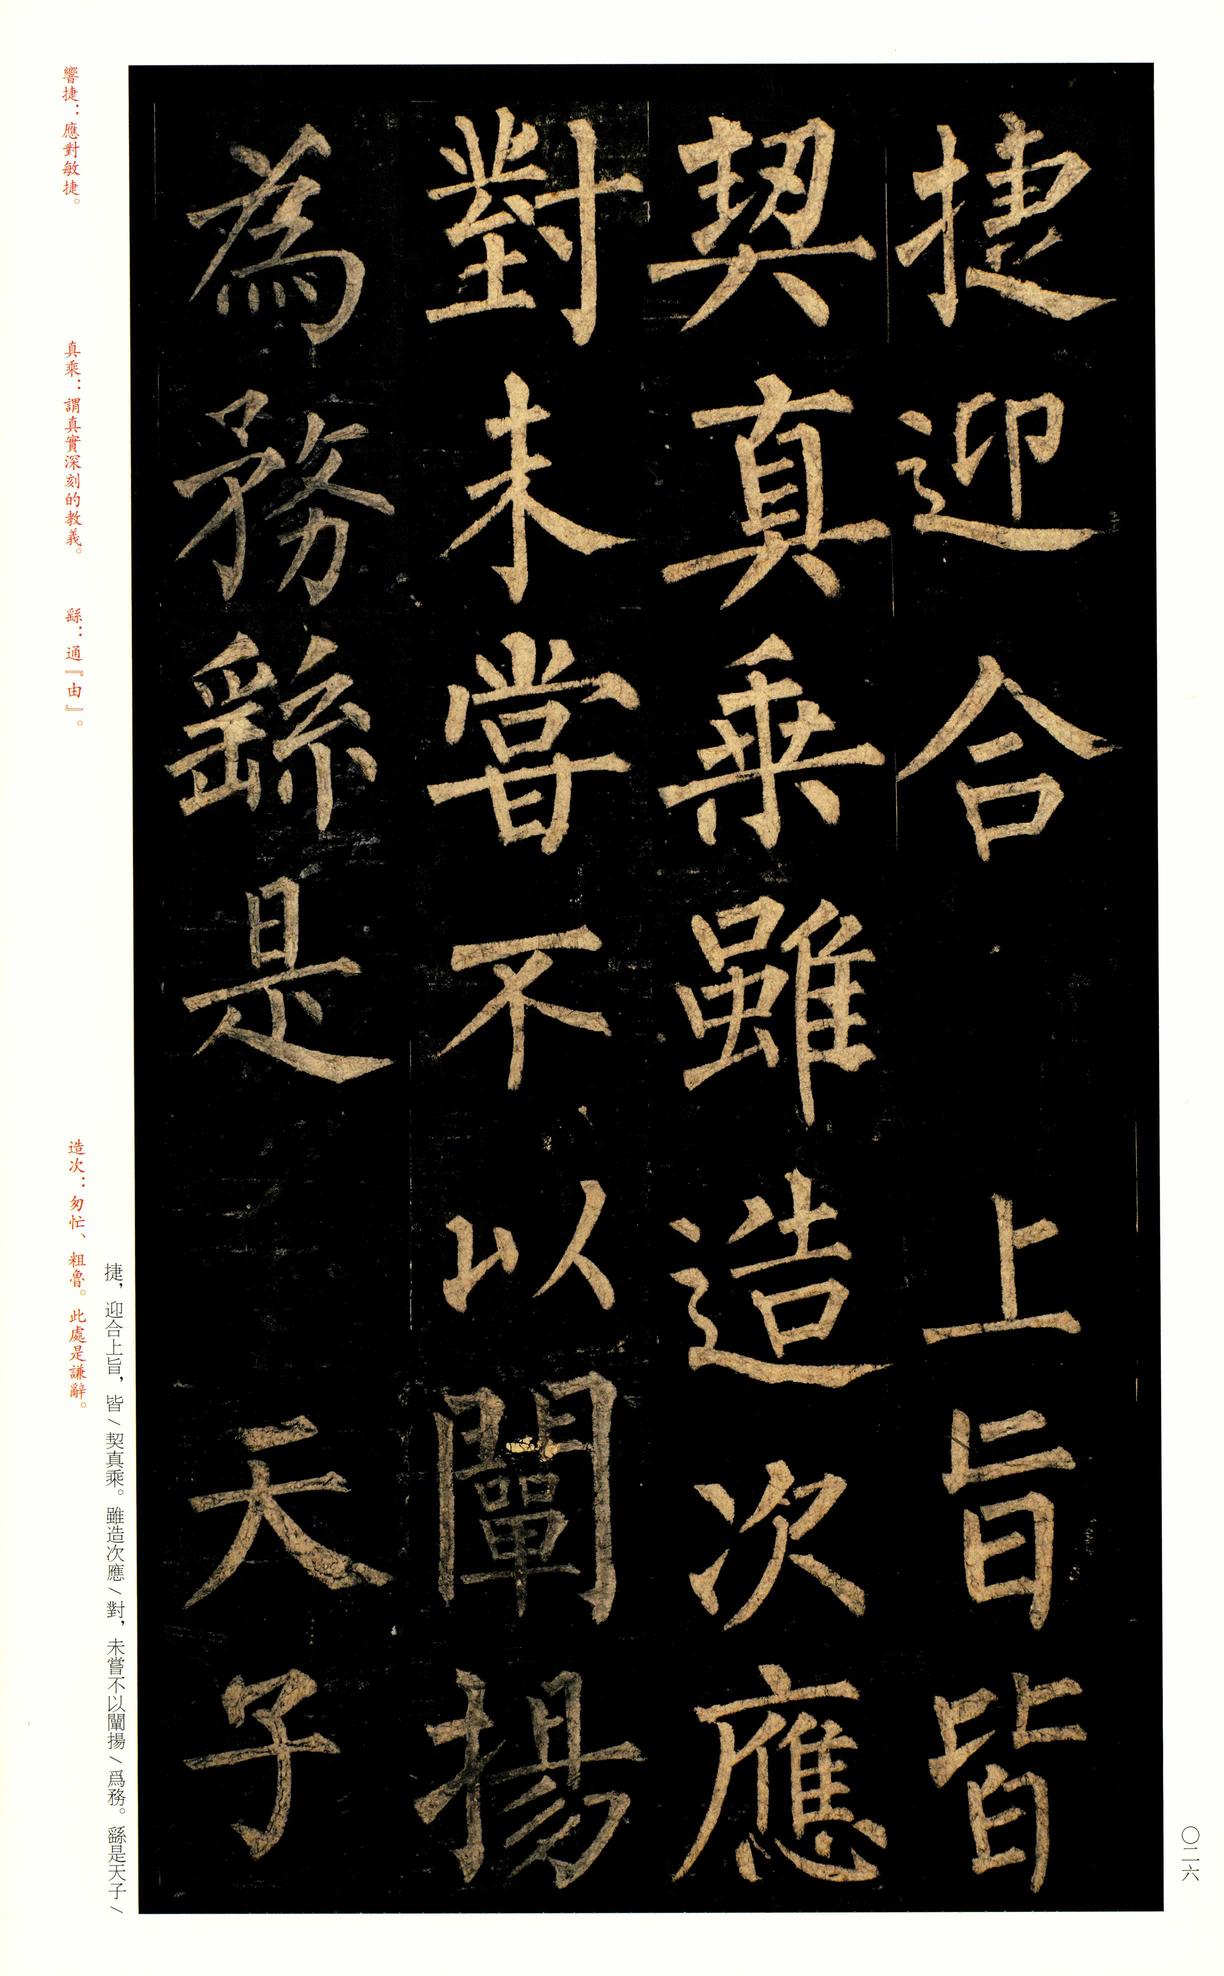 捷迎合上旨皆
契真乘雖造次應
對未嘗不以闡揚
為務繇是天子
捷，迎合上旨，皆／契真乘。雖造次應／對，未嘗不以闡揚／爲務。繇是天子／
響捷：應對敏捷。
真乘：謂真實深刻的教義。
繇：通『由』。
造次：匆忙、粗魯。此處是謙辭。
〇二六